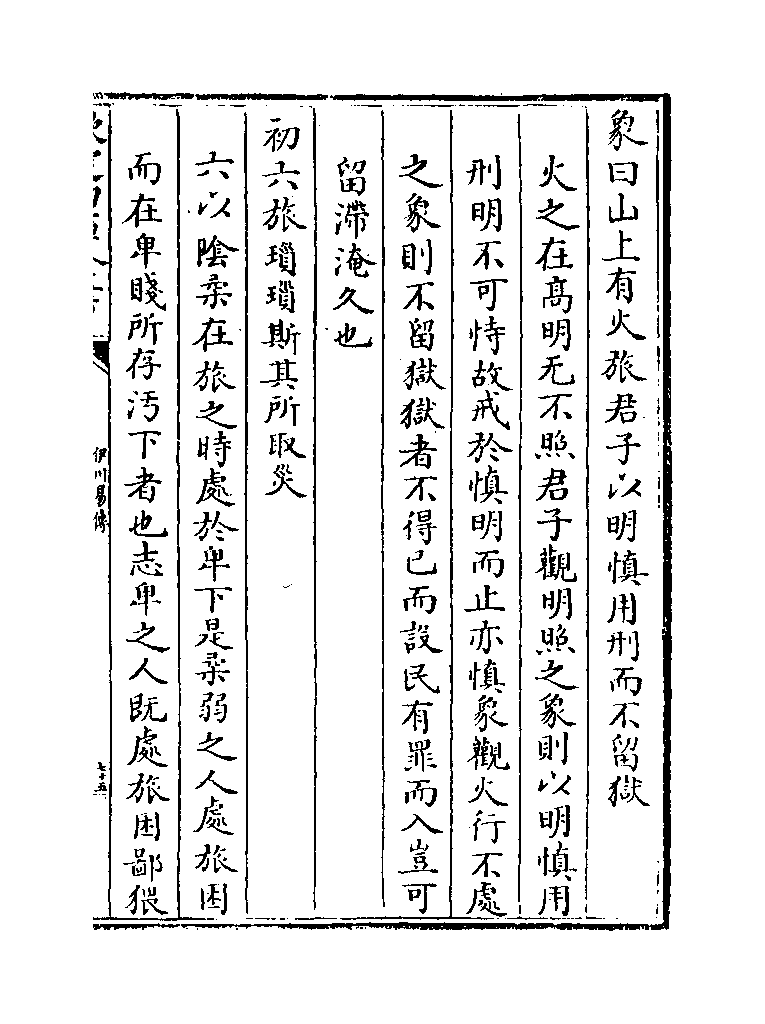 象曰山上有火旅君子以明慎用刑而不留獄
火之在髙明无不照君子觀明照之象則以明慎用
刑明不可恃故戒於慎明而止亦慎象觀火行不處
之象則不留獄獄者不得已而設民有罪而入豈可
留滯淹久也
初六旅瑣瑣斯其所取災
六以陰柔在旅之時處於卑下是柔弱之人處旅困
而在卑賤所存汚下者也志卑之人既處旅困鄙猥
伊川易傳
七十五